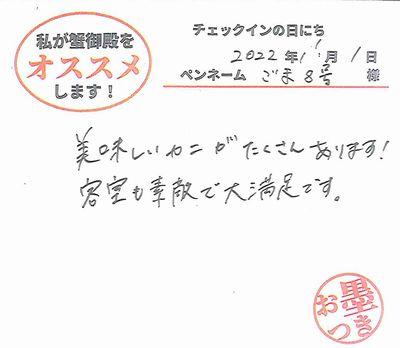 私が蟹御殿を
オススメ
します！
チェックインの日にち
2022年11月1日
ペンネーム ごま8号 様
美味しいカニがたくさんあります！
客室も素敵で大満足です。
お墨つき